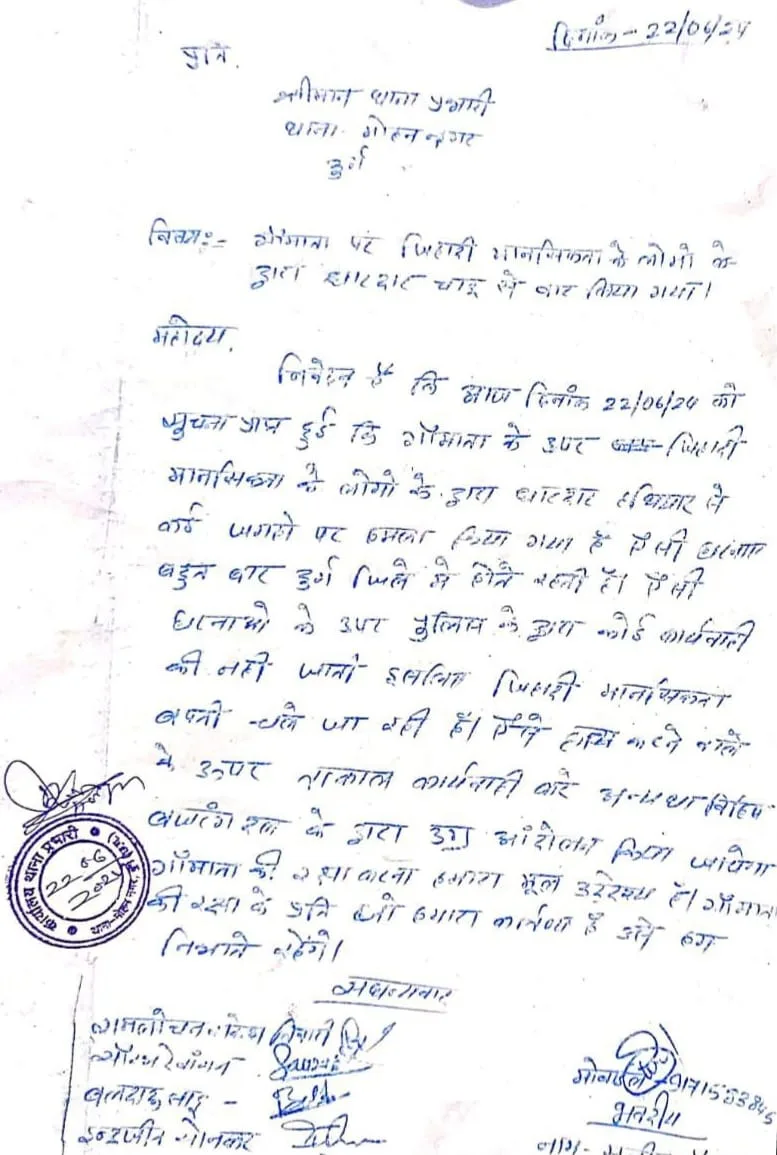 दिनांक - 22/06/24
प्रति,
श्रीमान थाना प्रभारी
थाना - मोहन नगर
दुर्ग
विषय:- गौमाता पर जिहादी मानसिकता के लोगो के
द्वारा धारदार चाकू से वार किया गया।
महोदय,
निवेदन है कि आज दिनांक 22/06/24 को
सूचना प्राप्त हुई कि गौमाता के उपर जिहादी
मानसिकता के लोगो के द्वारा धारदार हथियार से
कई जगहो पर हमला किया गया है ऐसी घटनाए
बहुत बार दुर्ग जिले मे होते रहती है। ऐसी
घटनाओ के उपर पुलिस के द्वारा कोई कार्यवाही
की नही जाती इसलिए जिहादी मानसिकता
बढ़ती चले जा रही है। ऐसे करने वाले
के ऊपर तत्काल कार्यवाही करे अन्यथा विहिप
बजरंग दल के द्वारा उग्र आंदोलन किया जायेगा
गौमाता की रक्षा करना हमारा मूल उद्देश्य है। गौमाता
की रक्षा के प्रति जो हमारा कर्तव्य है उसे हम
निभाते रहेंगे।
कार्यालय थाना प्रभारी
22-06
2024
थाना-मोहन नगर,
सधन्यवाद
सौरभ देवांगन
बलदाऊ साहू -